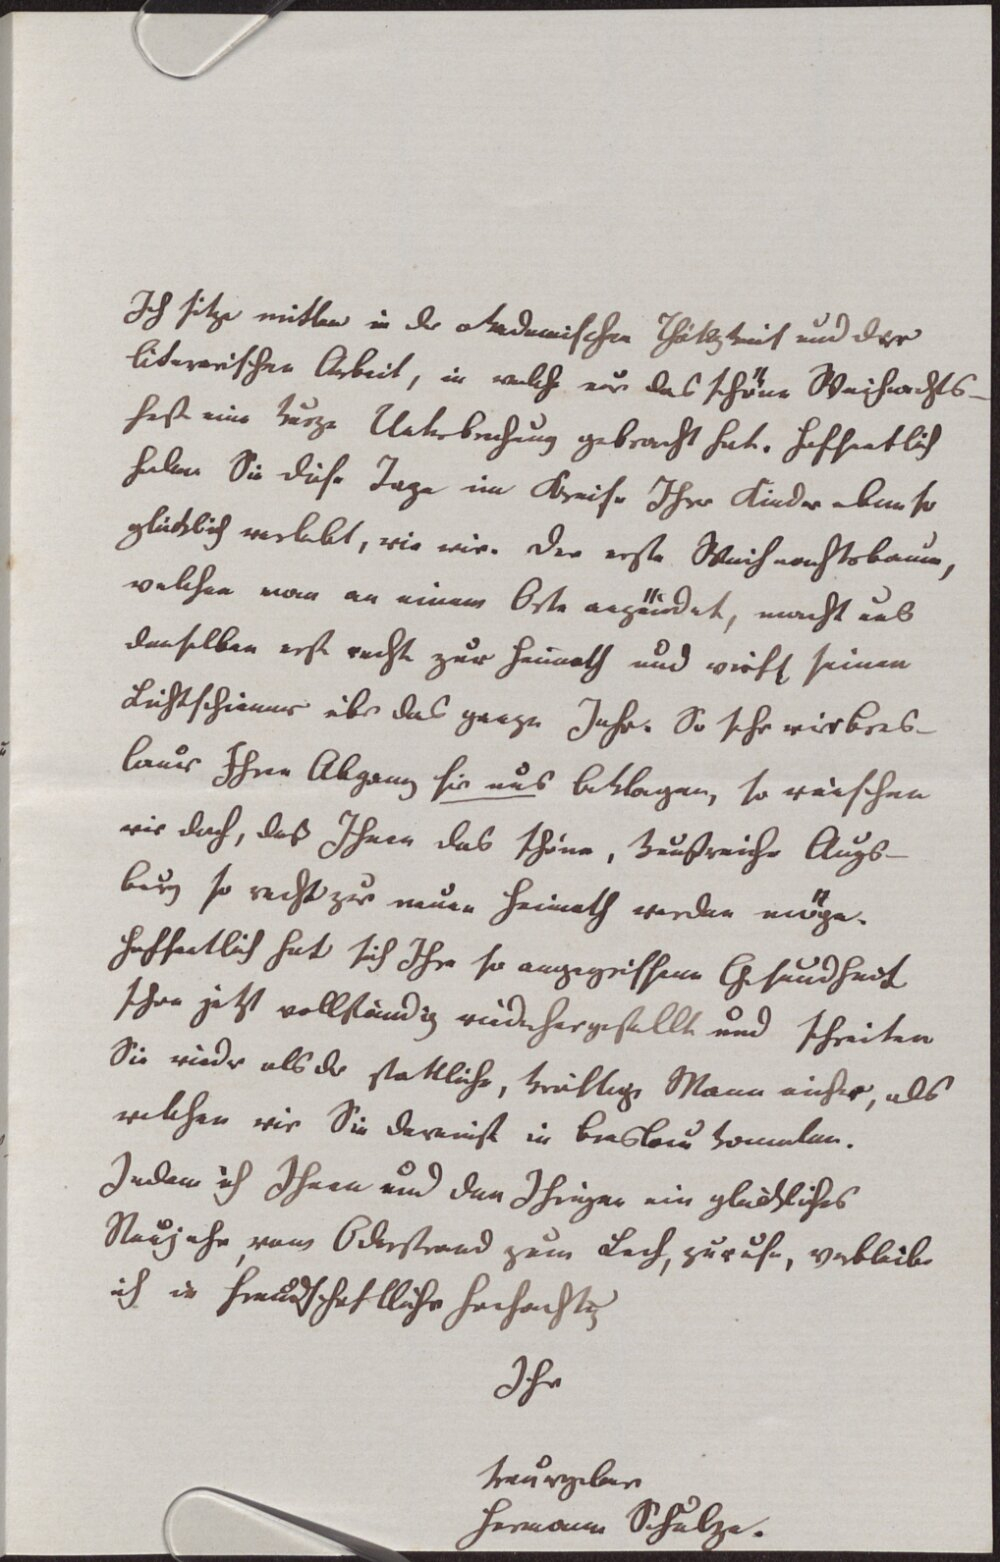 Ich sitze mitten in der akademischen Thätigkeit und der
literarischen Arbeit, in welche nur das schöne Weihnachts-
fest eine kurze Unterbrechung gebracht hat. Hoffentlich
haben Sie diese Tage im Kreise Ihrer Kinder ebenso
glücklich verlebt, wie wir. Der erste Weihnachtsbaum,
welchen man an einem Orte anzündet, macht uns
denselben erst recht zur Heimath und wirft seinen
Lichtschimmer über das ganze Jahr. So sehr wir Bres-
lauer Ihren Abgang für uns beklagen, so wünschen
wir doch, daß Ihnen das schöne, kunstreiche Augs-
burg so recht zur neuen Heimath werden möge.
Hoffentlich hat sich Ihre so angegriffene Gesundheit
schon jetzt vollständig wiederhergestellt und schreiten
Sie wieder als der stattliche, kräftige Mann einher, als
welchen wir Sie dereinst in Breslau kannten.
Indem ich Ihnen und den Ihrigen ein glückliches
Neujahr, vom Oderstrand zum Lech, zurufe, verbleibe
ich in freundschaftlicher Hochachtg
Ihr
treuergebener
Hermann Schulze.